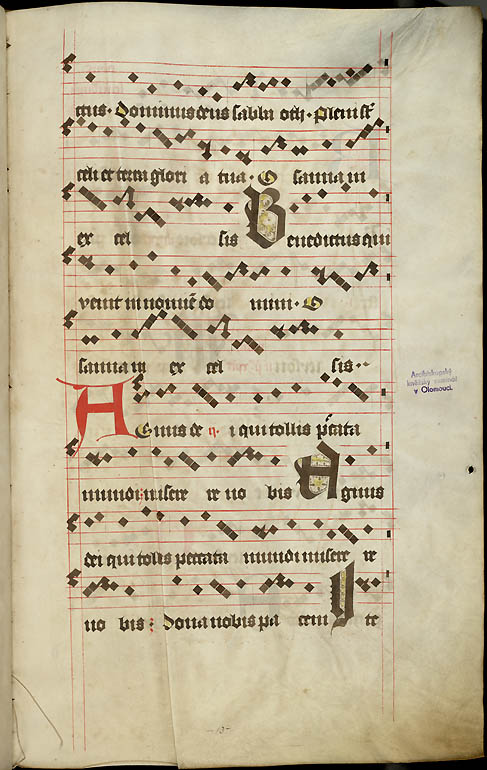 ctus · Dominus deus sabba oth · Pleni st̄
celi et terra glori a tua · O sanna in
ex cel sis Benedictus qui
venit in nomīe do mini · O
sanna in ex cel sis ··
Agnus de i qui tollis pc̄cata
mundi : misere re no bis Agnus
dei qui tollis peccata mundi misere re
no bis : Dona nobis pa cem Ite
Arcibiskupský
kněžský seminář
v Olomouci.